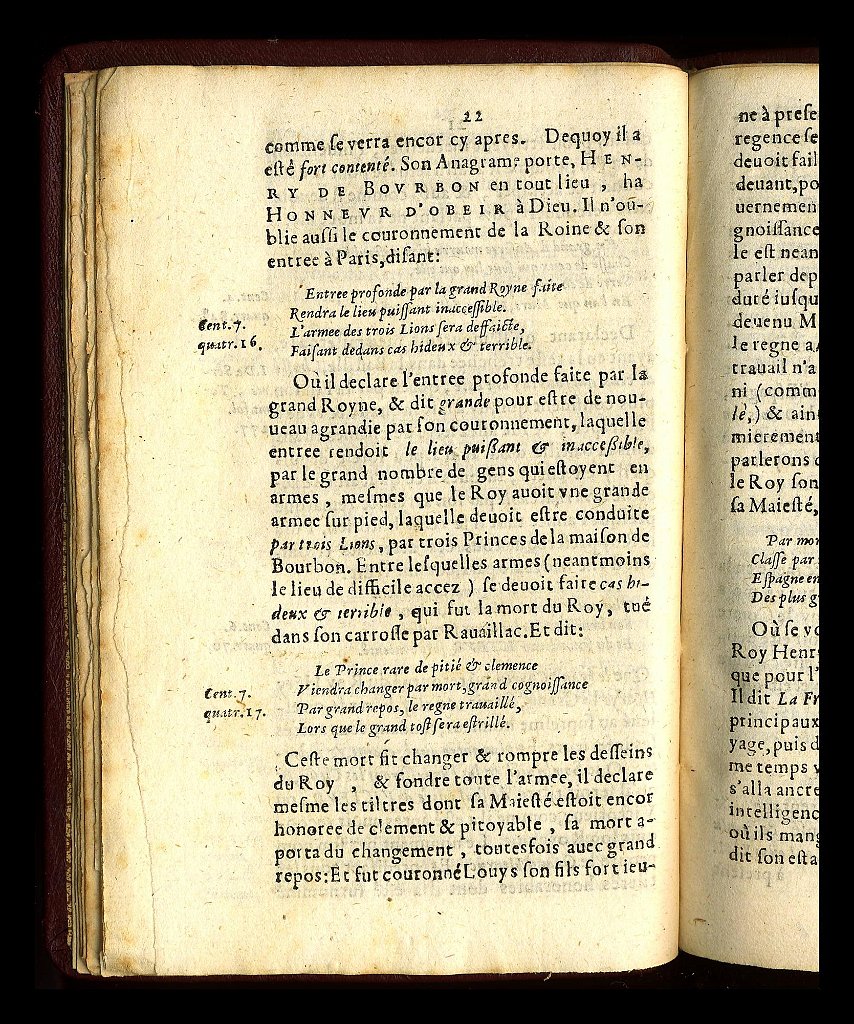 22
comme ſe verra encor cy apres. Dequoy il a
eſté fort contenté. Son Anagrame porte, HEN-
RY DE BOVRBON en tout lieu , ha
HONNEVR D'OBEIR à Dieu. Il n'ou-
blie auſſi le couronnement de la Roine & ſon
entree à Paris,diſant:
Entree profonde par la grand Royne faite
Rendra le lieu puiſſant inacceſſible.
Cent. 7.
L'armee des trois Lions ſera deffaicte,
quatr. 16.
Faiſant dedans cas hideux & terrible.
Où il declare l'entree profonde faite par la
grand Royne, & dit grande pour eſtre de nou-
ueau agrandie par ſon couronnement, laquelle
entree rendoit le lieu puiſſant & inacceſſible,
par le grand nombre de gens qui eſtoyent en
armes , meſmes que le Roy auoit vne grande
armee ſur pied, laquelle deuoit eſtre conduite
par trois Lions, par trois Princes de la maiſon de
Bourbon. Entre leſquelles armes (neantmoins
le lieu de difficile accez ) ſe deuoit faire cas hi-
deux & terrible , qui fut la mort du Roy, tué
dans ſon carroſſe par Rauaillac. Et dit:
Le Prince rare de pitié & clemence
Cent. 7.
Viendra changer par mort, grand cognoiſſance
quatr. 17.
Par grand repos, le regne trauaillé,
Lors que le grand toſt ſera eſtrillé.
Ceſte mort fit changer & rompre les deſſeins
du Roy , & fondre toute l'armee, il declare
meſme les tiltres dont ſa Maieſté eſtoit encor
honoree de clement & pitoyable , ſa mort a-
porta du changement , toutesfois auec grand
repos: Et fut couronné Louys ſon fils fort ieu-
ne à preſe
regence ſe
deuoit fail
deuant, po
uernemen
gnoiſſance
le eſt nean
parler dep
duré iuſqu
deuenu M
le regne a
trauail n'a
ni (comm
lé,) & ain
mierement
parlerons
le Roy ſon
ſa Maieſté,
Par mor
Claſſe par
Eſpagne en
Des plus g
Où ſe vo
Roy Henr
que pour l'
Il dit La Fr
principaux
yage, puis d
me temps v
s'alla ancre
intelligenc
où ils mang
dit ſon eſta